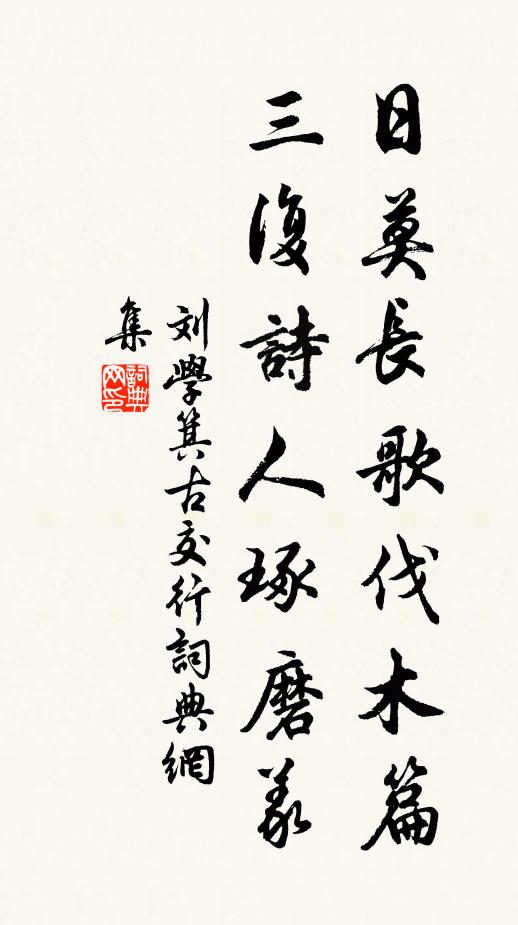 日莫長歌伐木篇
三復詩人琢磨義
刘學箕古交行詞典網
集
詞典网印